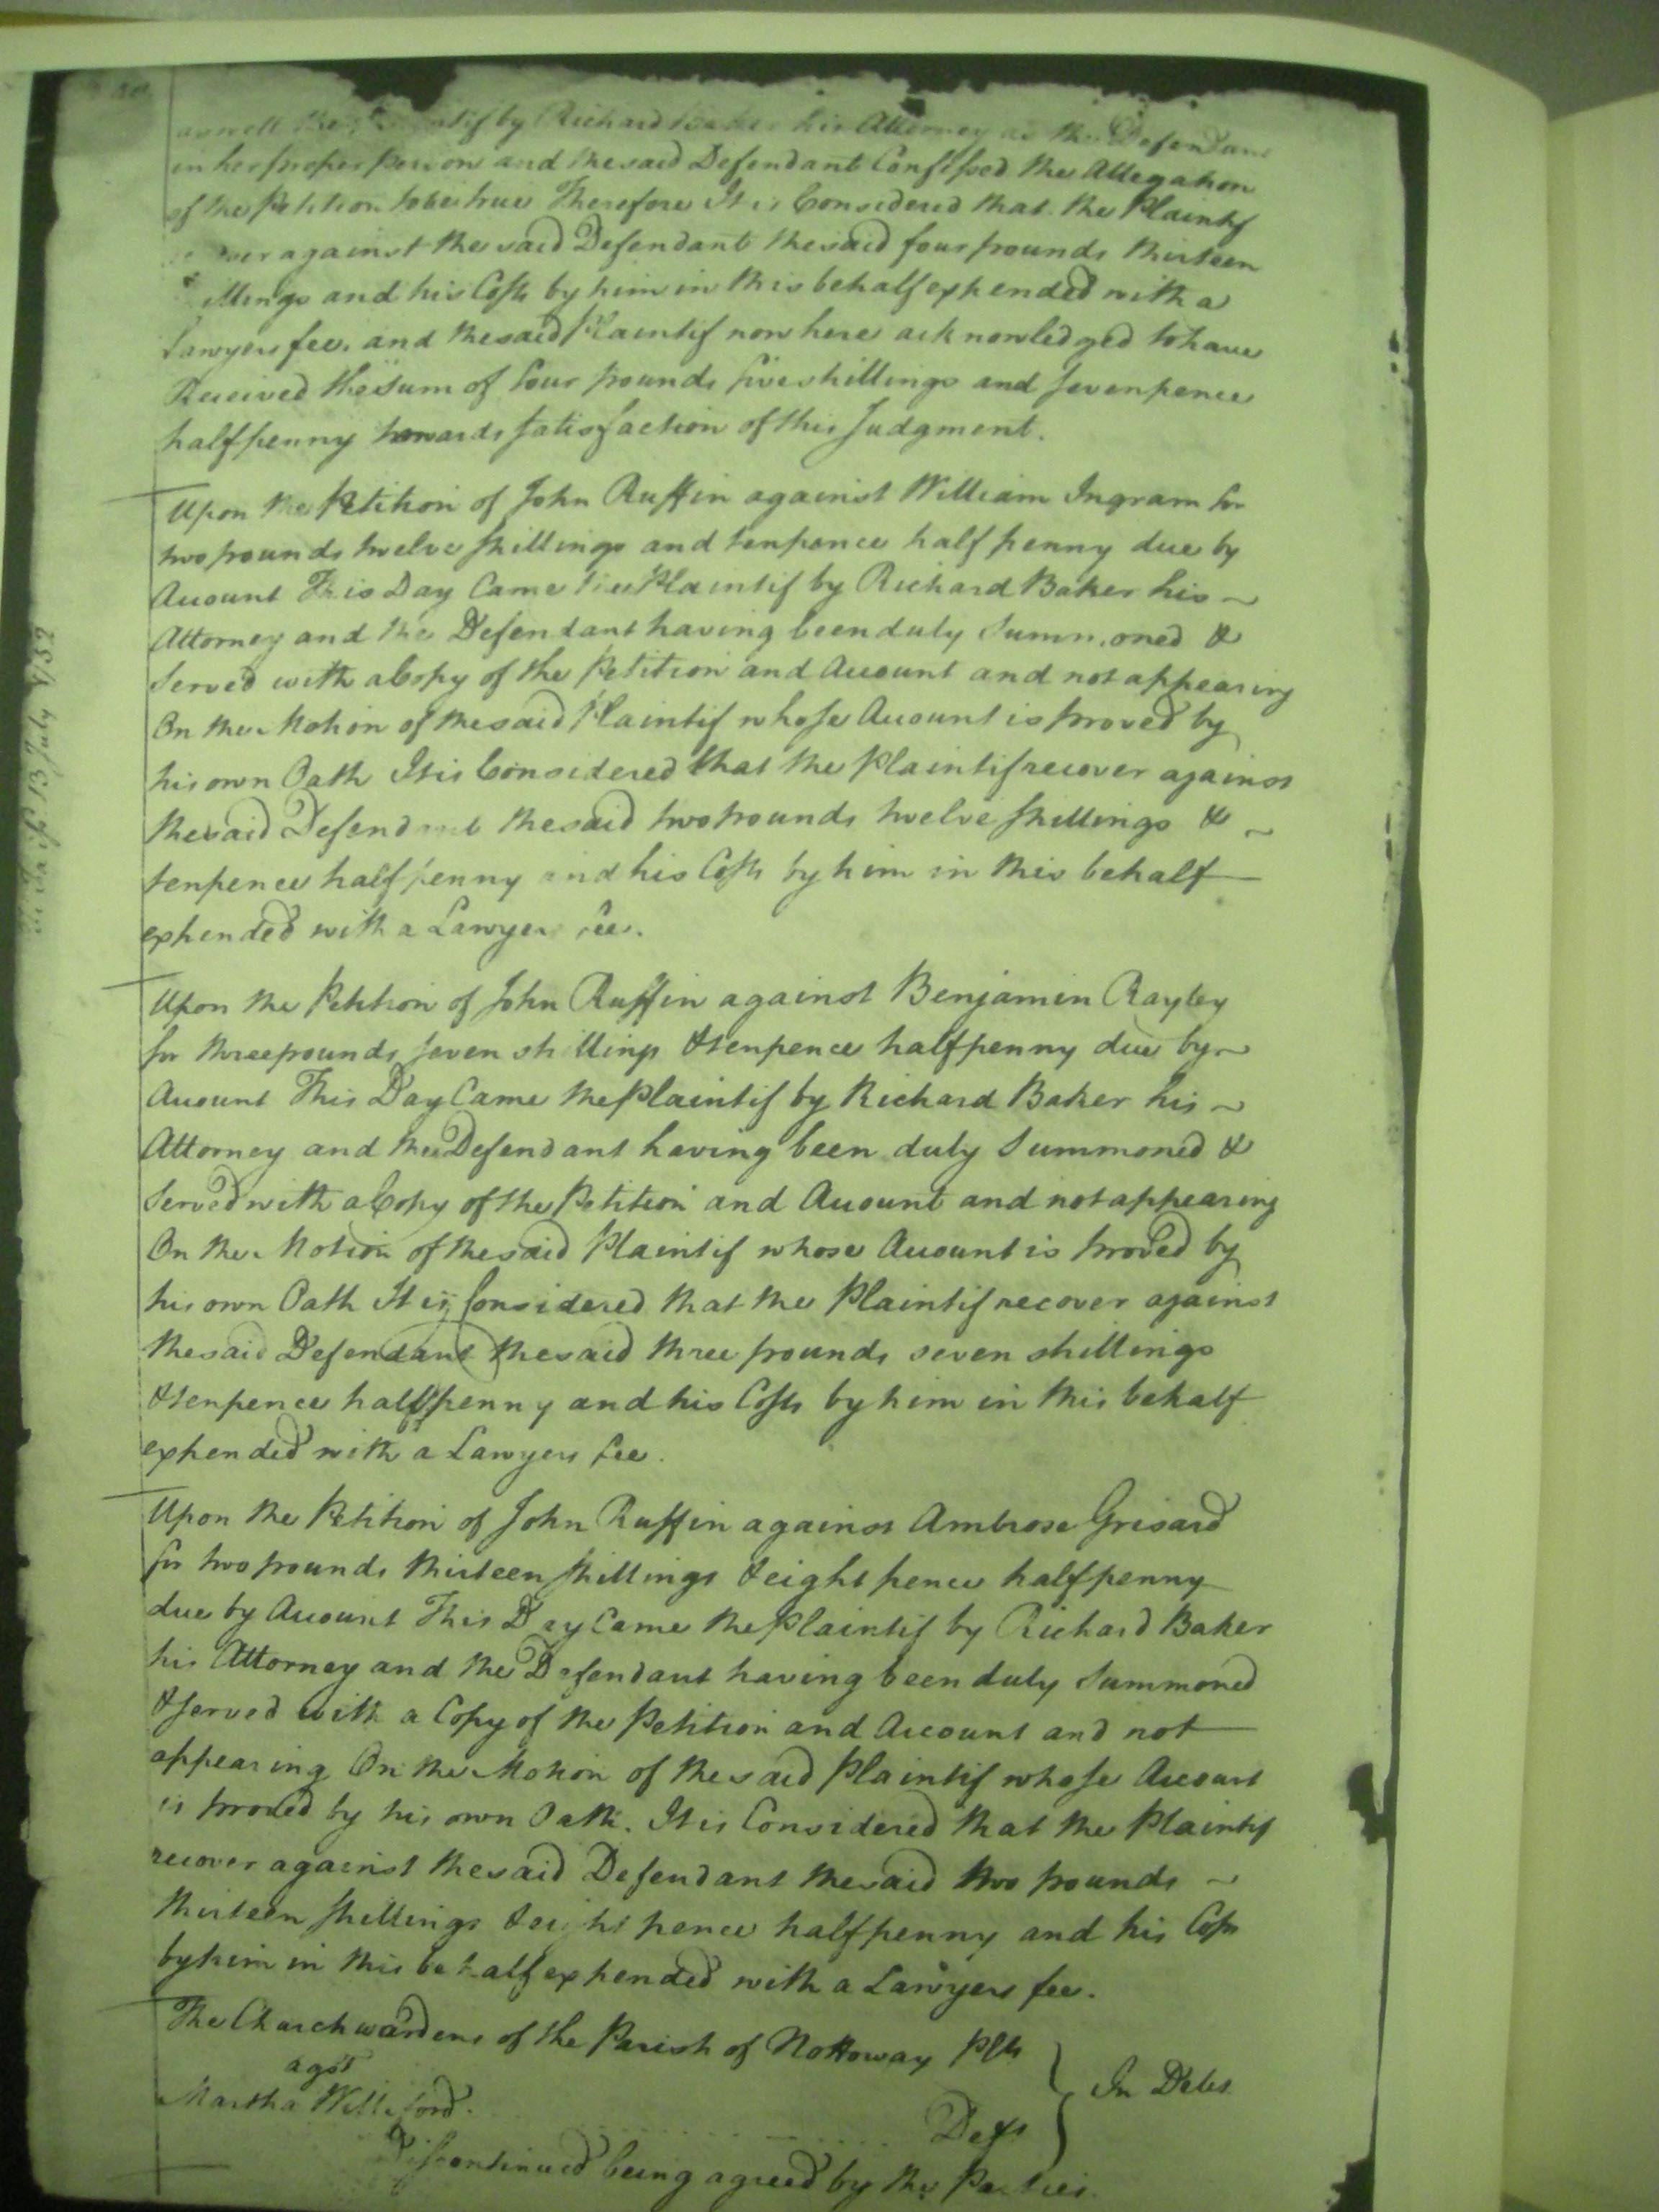 aswell the Plaintif by Richard Baker his Attorney as the Defendant
in her proper person and the said Defendant Confessed the Allegation
of the Petition to be true Therefore It is Considered that the Plaintif
against the said Defendant the said four pounds thirteen
illings and his Costs by him in this behalf expended with a
Lawyers fee. and the said Plaintif now here acknowledged to have
Received the Sum of four pounds five shillings and sevenpence
halfpenny towards satisfaction of this Judgment.
Upon the Petition of John Ruffin against William Ingram for
two pounds twelve shillings and tenpence halfpenny due by
Account This Day Came the Plaintif by Richard Baker his ~
Attorney and the Defendant having been duly Summoned &
Served with a Copy of the Petition and Account and not appearing
On the Motion of the said Plaintif whose Account is proved by
his own Oath It is Considered that the Plaintif recover against
the said Defendant the said two pounds twelve shillings & ~
tenpence halfpenny and his Costs by him in this behalf
expended with a Lawyers fee.
Upon the Petition of John Ruffin against Benjamin Rayley
for three pounds seven shillings & tenpence halfpenny due by ~
Account This Day Came the Plaintif by Richard Baker his ~
Attorney and the Defendant having been duly Summoned &
Served with a Copy of the Petition and Account and not appearing
On the Motion of the said Plaintif whose Account is proved by
his own Oath It is Considered that the Plaintif recover against
the said Defendant the said three pounds seven shillings
& tenpence halfpenny and his Costs by him in this behalf
expended with a Lawyers fee.
Upon the Petition of John Ruffin against Ambrose Grisard
for two pounds thirteen shillings & eight pence halfpenny
due by Account This Day Came the Plaintif by Richard Baker
his Attorney and the Defendant having been duly Summoned
& served with a Copy of the Petition and Account and not
appearing On the Motion of the said Plaintif whose Account
is proved by his own Oath. It is Considered that the Plaintif
recover against the said Defendant the said two pounds ~
thirteen shillings & eight pence halfpenny and his Costs
by him in this behalf expended with a Lawyers fee.
The Churchwardens of the Parish of Nottoway Plts
agst
In Debt
Martha Williford.
Deft
Discontinued being agreed by the Parties.
13 July 1752